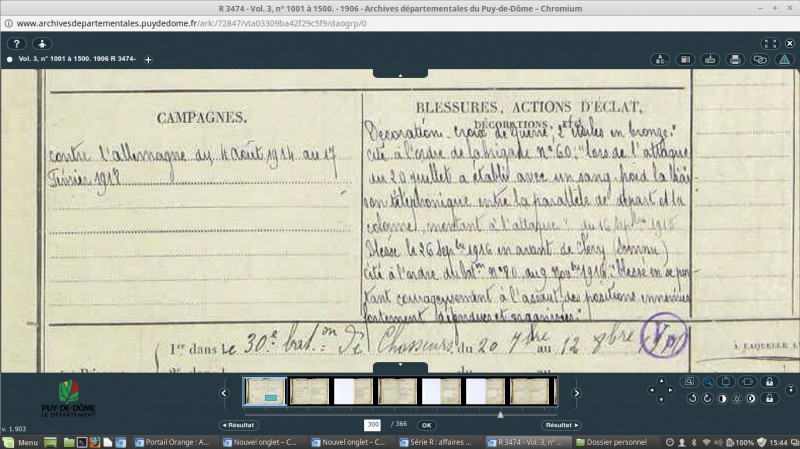 R 3474 - Vol. 3, n° 1001 à 1500. - 1906 - Archives départementales du Puy-de-Dôme – Chromium
www.archivesdepartementales.puydedome.fr/ark:/72847/vta03309ba42f29c5f9/daogrp/0
Vol. 3, n° 1001 à 1500. 1906 R 3474-
CAMPAGNES.
contre l'allemagne du 4 Août 1914 au 17
Février 1918
BLESSURES, ACTIONS D'ÉCLAT,
DÉCORATIONS, ETC.
Décoration. Croix de guerre, 2 étoiles en bronze.
cité à l'ordre de la brigade n° 60: "lors de l'attaque
du 20 juillet a établi avec un sang froid la liai
son téléphonique entre la parallèle de départ et la
colonne montant à l'attaque" du 16 Septbre 1915
Blessé le 26 Septbre 1916 en avant de Cléry (Somme)
cité à l'ordre du baton n° 80 du 9 9bre 1916: "Blessé en se por
tant courageusement à l'assaut des positions ennemies
fortement défendues et organisées."
1er dans le 30e baton de Chasseurs du 20 7bre au 12 8bre
À LAQUELLE
PUY-DE-DÔME
LE DÉPARTEMENT
v. 1.903
Résultat
300 / 366 OK
Résultat
Menu
Portail Orange : A...
Nouvel onglet – C...
Nouvel onglet – C...
Série R : affaires ...
R 3474 - Vol. 3, n° ...
Dossier personnel
100%
15:44